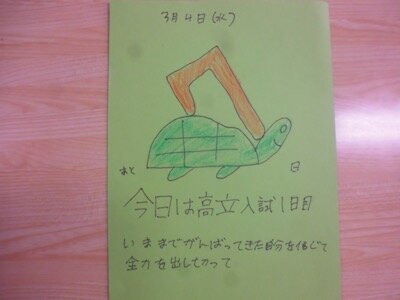 3月4日(水)
あと 日
今日は高立入試1日目
いままでがんばってきた自分を信じて
全力を出しきって